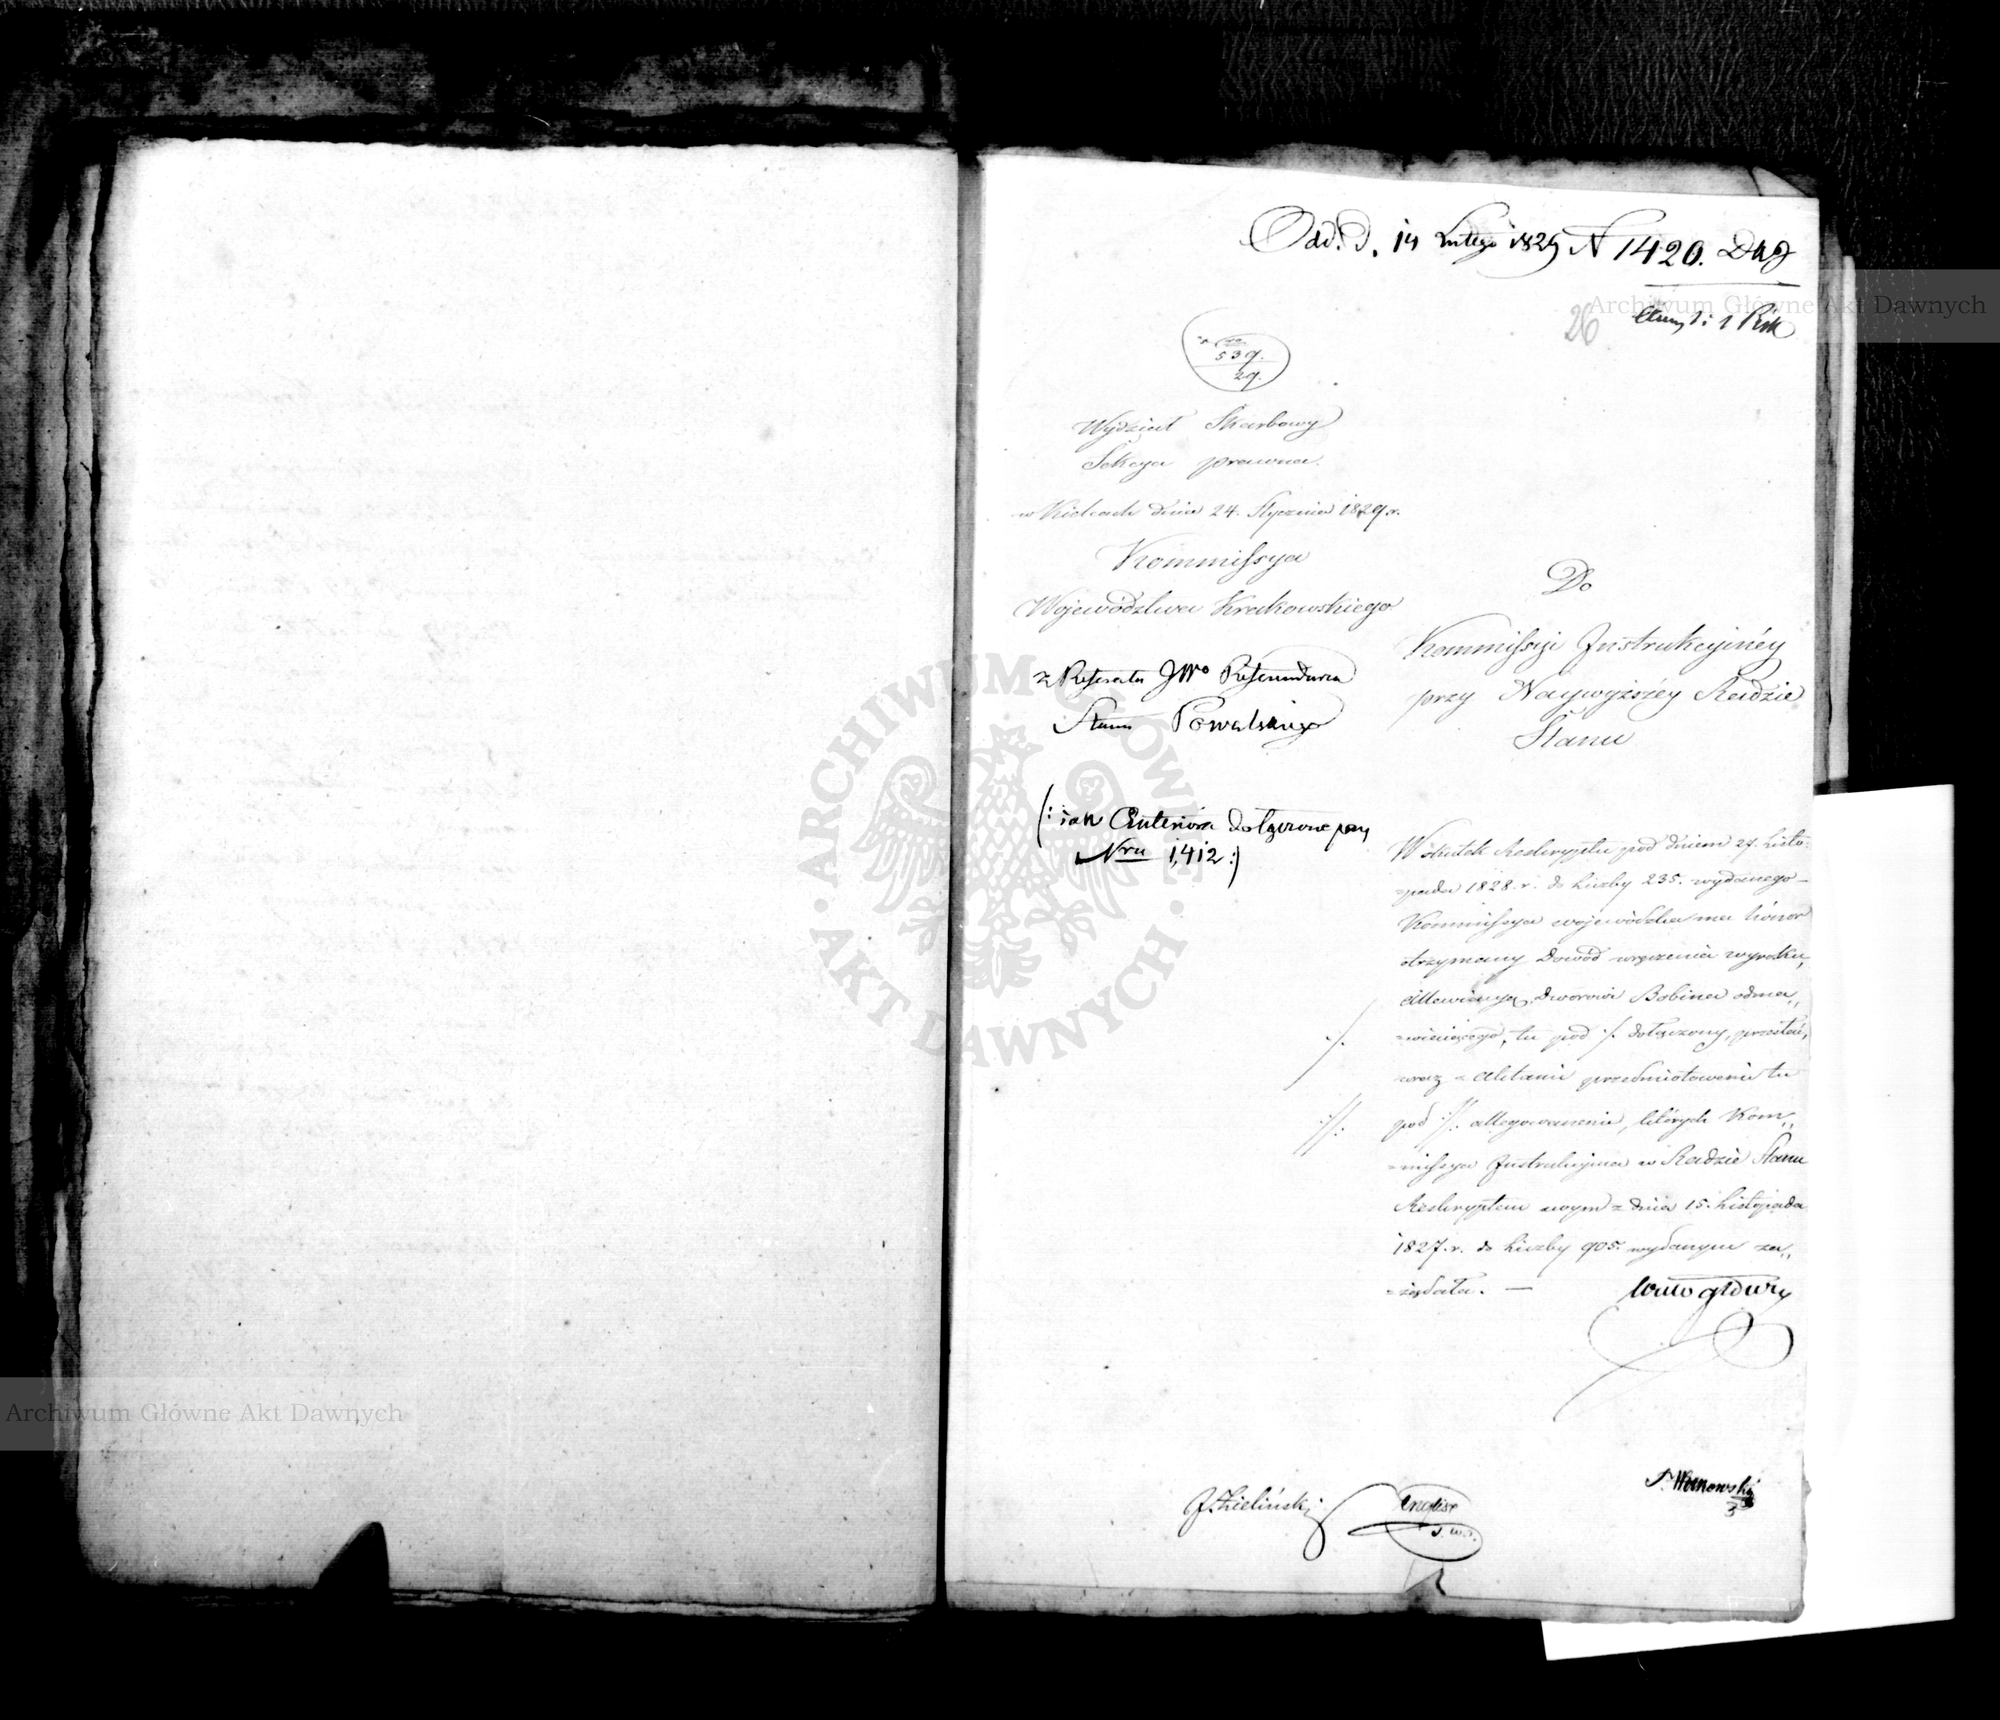 Odd. D. 14 Lutego 1829 N 1420. Dng
Archiwum Główne Akt Dawnych
26
539.
29.
Wydział Skarbowy
Sekcya prawna.
w Kielcach dnia 24. Stycznia 1829 r.
Kommissya
Województwa Krakowskiego
z Referatu JWo Referendarza
Stanu
(: iak Anteriora dołączone przy
Nru 1,412 :)
Do
Kommissyi Instrukcyinéy
przy Naywyższéy Radzie
Stanu
W skutek Reskryptu pod dniem 27. Listo-
=pada 1828. r. do Liczby 235. wydanego
Kommissya wojewódzka ma honor
otrzymany Dowód wręczenia wyroku,
Dworowi Bobina odma,,
=wiaiącego, tu pod ·/. dołączony, przesłać,
·/.
wraz z Aktami przedmiotowemi tu
pod ·//. allegowanemi, których Kom,,
·//.
=missya Instrukcyina w Radzie Stanu
Reskryptem swym z dnia 15. Listopada
1827. r. do Liczby 905. wydanym za,,
=żądała. —
ARCHIWUM GŁÓWNE
AKT DAWNYCH
Archiwum Główne Akt Dawnych
J. Zieliński